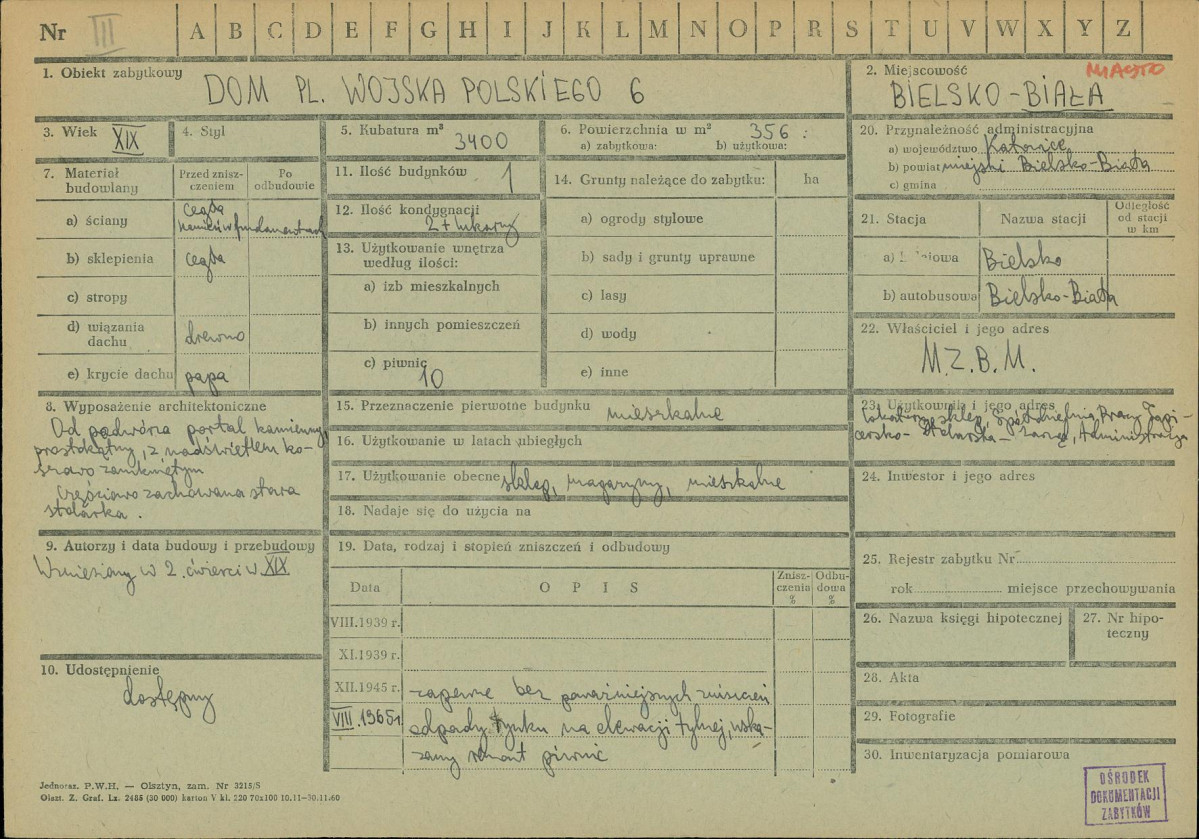 Nr III A B C D E F G H I J K L M N O P R S T U V W X Y Z
1. Obiekt zabytkowy
DOM PL. WOJSKA POLSKIEGO 6
2. Miejscowość
MIASTO
BIELSKO-BIAŁA
3. Wiek
XIX
4. Styl
5. Kubatura m³
3400
6. Powierzchnia w m² 356 :
a) zabytkowa: b) użytkowa:
20. Przynależność administracyjna
a) województwo Katowice
b) powiat miejski Bielsko-Biała
c) gmina
7. Materiał budowlany
Przed znisz-
czeniem
Po
odbudowie
a) ściany
cegła
kamień w fundamentach
b) sklepienia cegła
c) stropy
d) wiązania
dachu
drewno
e) krycie dachu papa
11. Ilość budynków 1
12. Ilość kondygnacji
2 +
13. Użytkowanie wnętrza
według ilości:
a) izb mieszkalnych
b) innych pomieszczeń
c) piwnic
10
14. Grunty należące do zabytku: ha
a) ogrody stylowe
b) sady i grunty uprawne
c) lasy
d) wody
e) inne
21. Stacja
Nazwa stacji
Odległość
od stacji
w km
a) Bielsko
b) autobusowa Bielsko-Biała
22. Właściciel i jego adres
M.Z.B.M.
8. Wyposażenie architektoniczne
Od podwórza portal kamienny,
prostokątny, z nadświetlem ko-
szowo zamkniętym
Częściowo zachowana stara
stolarka.
15. Przeznaczenie pierwotne budynku mieszkalne
16. Użytkowanie w latach ubiegłych
17. Użytkowanie obecne sklep, magazyny, mieszkalne
18. Nadaje się do użycia na
23. Użytkownik i jego adres
lokatorzy, sklep, Spółdzielnia Pracy Tapi-
cersko-Stolarska - Zarząd, Administracja
24. Inwestor i jego adres
9. Autorzy i data budowy i przebudowy
Wzniesiony w 2. ćwierci w. XIX
19. Data, rodzaj i stopień zniszczeń i odbudowy
Data
O P I S
Znisz-
czenia
%
Odbu-
dowa
%
VIII.1939 r.
XI.1939 r.
XII.1945 r. zapewne bez poważniejszych zniszczeń
VIII.1965 r. odpady tynku na elewacji tylnej, wska-
zany remont piwnic
10. Udostępnienie
dostępny
25. Rejestr zabytku Nr
rok miejsce przechowywania
26. Nazwa księgi hipotecznej
27. Nr hipo-
teczny
28. Akta
29. Fotografie
30. Inwentaryzacja pomiarowa
OŚRODEK
DOKUMENTACJI
ZABYTKÓW
Jednoraz. P.W.H. — Olsztyn, zam. Nr 3215/S
Olszt. Z. Graf. Lz. 2485 (30 000) karton V kl. 220 70x100 10.11—30.11.60